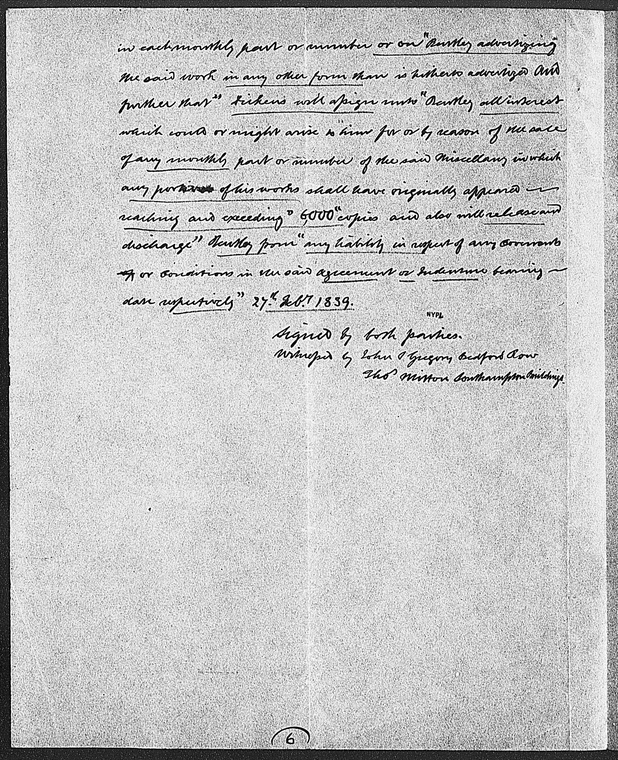 in each monthly part or number or on "Bentley advertizing"
the said work in any other form than is hitherto advertized And
further that" Dickens will assign unto "Bentley all interest
which could or might arise to "him for or by reason of the sale
of any monthly part or number of the said Miscellany in which
any portions of his works shall have originally appeared —
reaching and exceeding" 6,000 "copies and also will release and
discharge" Bentley from "any liability in respect of any Covenants
or Conditions in the said Agreement or Indenture bearing —
date respectively" 27th Feby 1839.
NYPL
Signed by both parties.
Witnessed by John Gregory Bedford Row
Thos Mitton Southampton Buildings
6